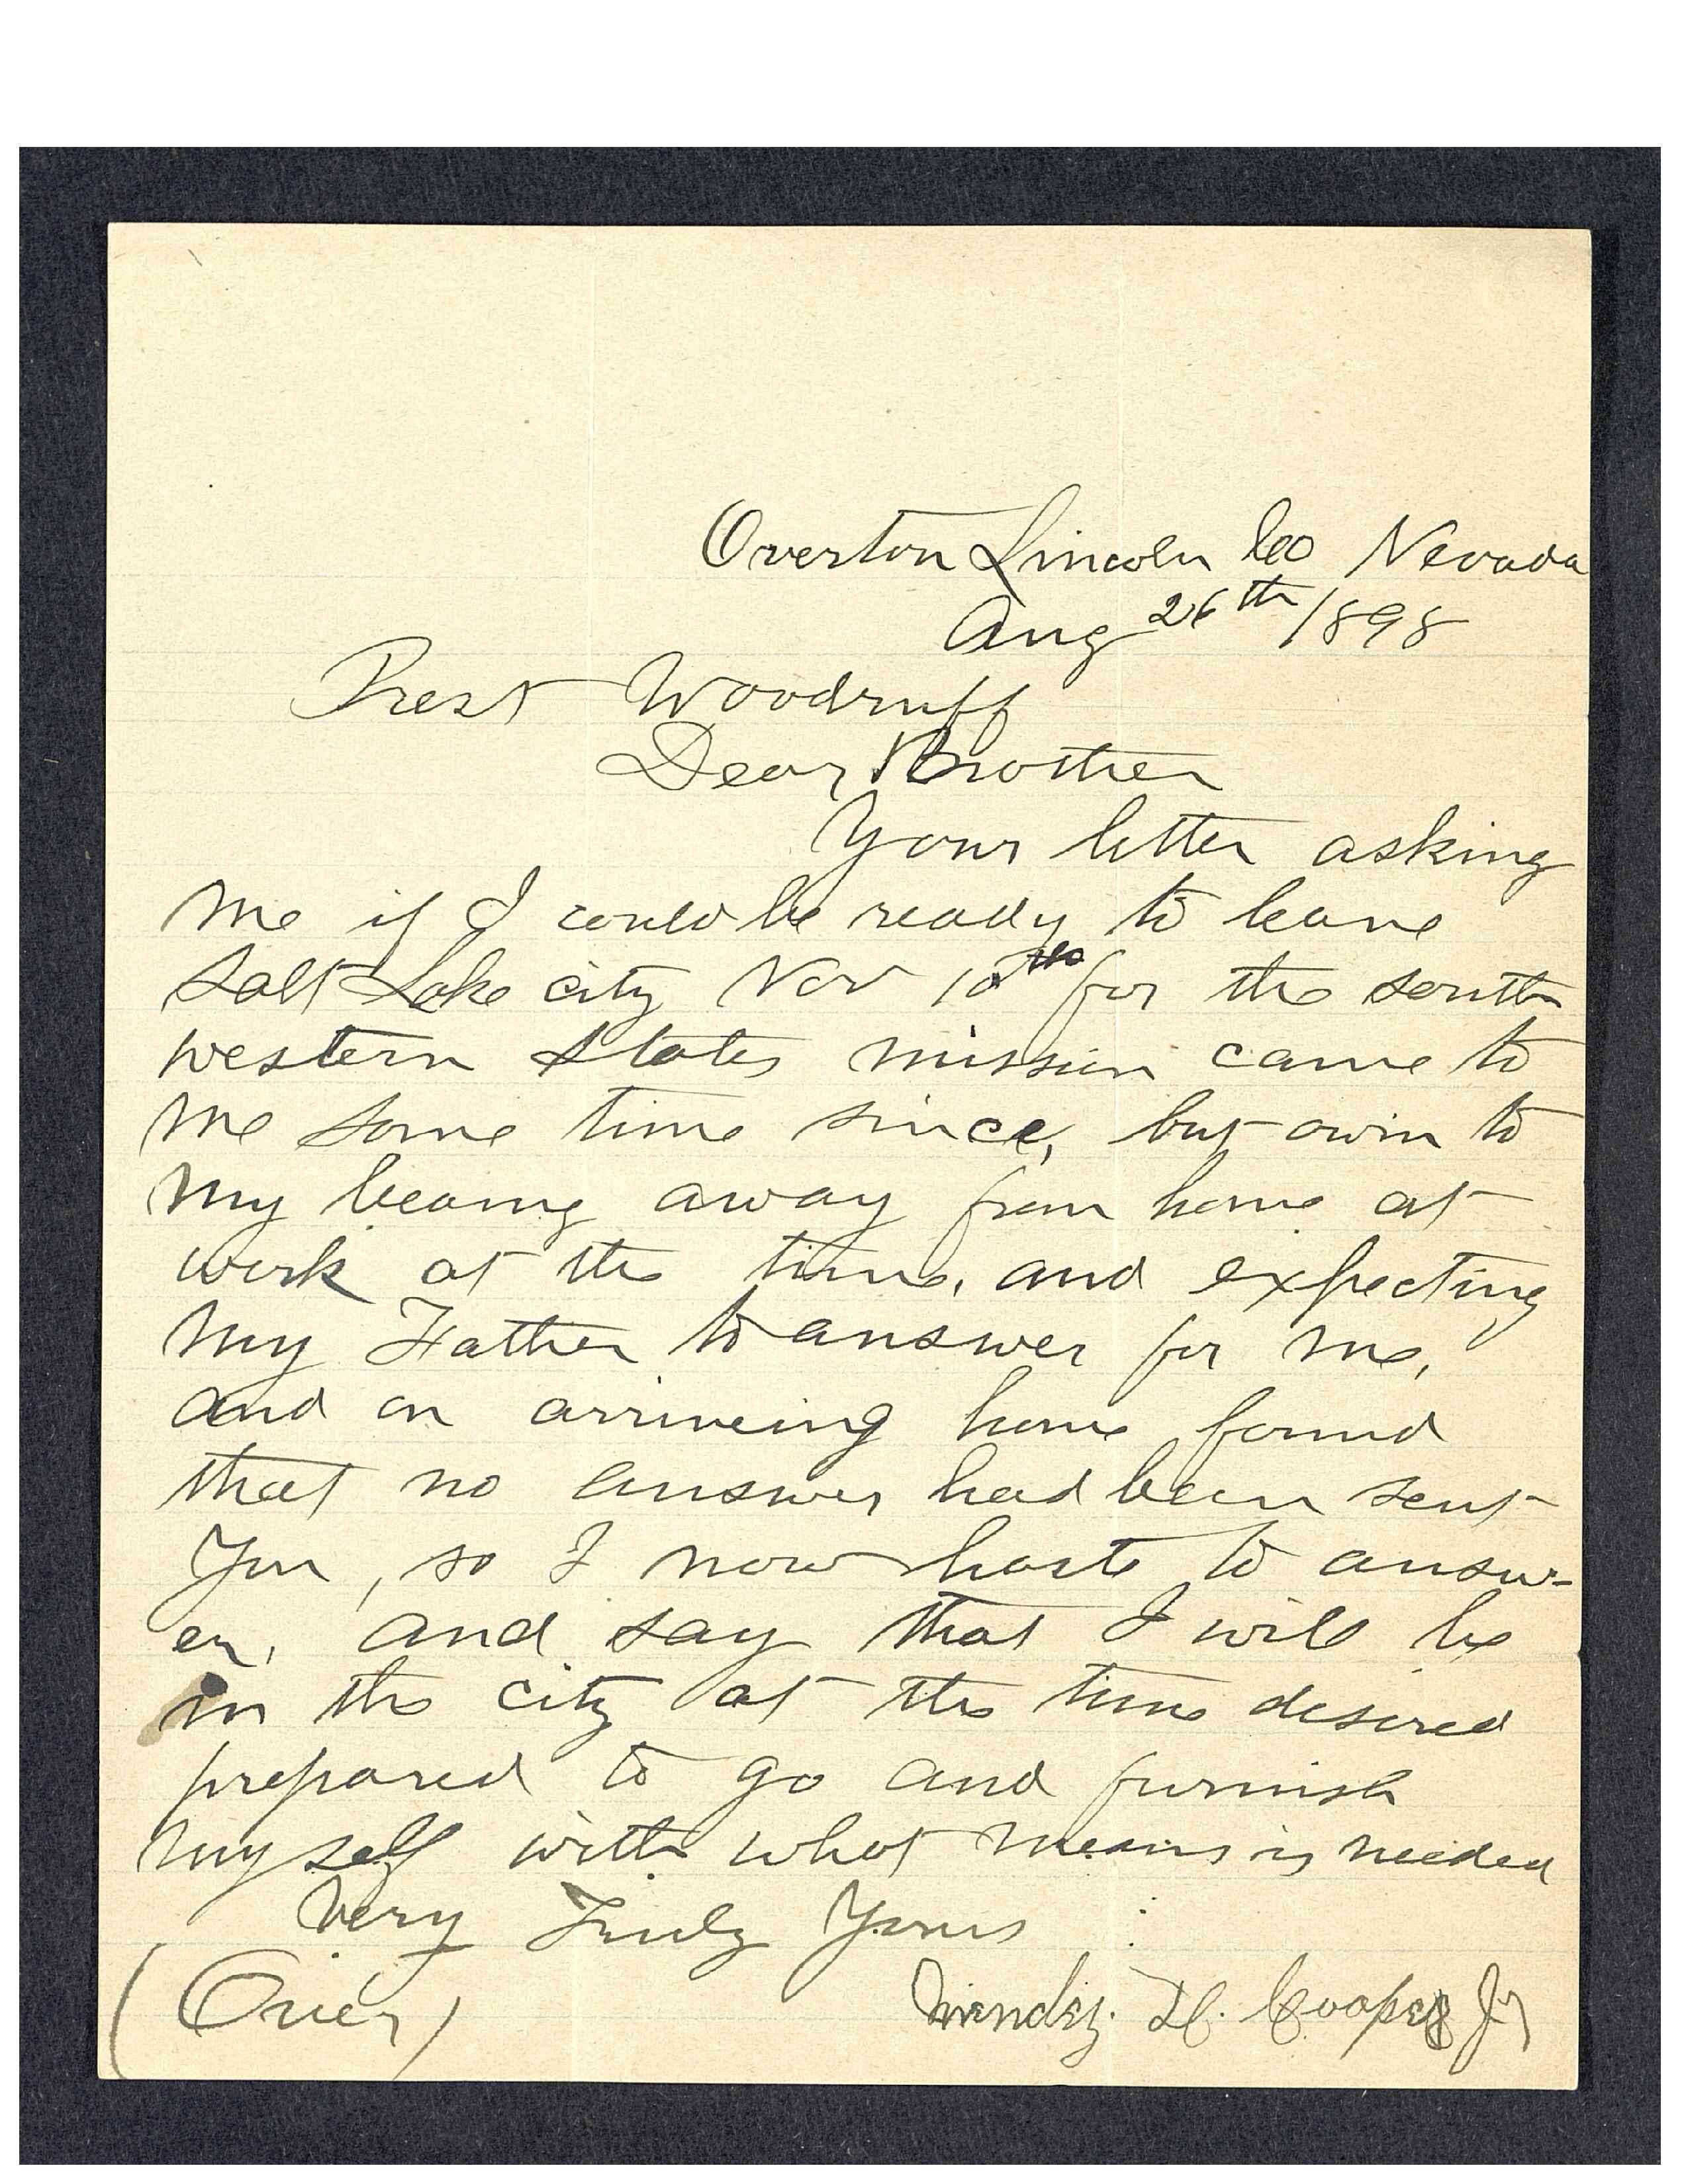 Overton Lincoln Co Nevada
Aug 26th /1898
Prest Woodruff
Dear Brother
Your letter asking
me if I could be ready to leave
Salt Lake city Nov 10th for the south
western states mission came to
me some time since, but owin to
my beaing away from home at
work at the time, and expecting
my Father to answer for me,
and on arriveing home found
that no answer had been sent
You, so I now haste to answ-
er, and say that I will be
in the city at the time desired
prepared to go and furnish
myself with what means is needed
Very Truly Yours
(Over)
H. Cooper Jr